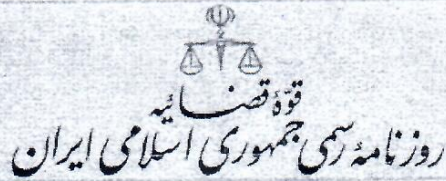 قوّهٔ قضائیه
روزنامهٔ رسمی جمهوری اسلامی ایران